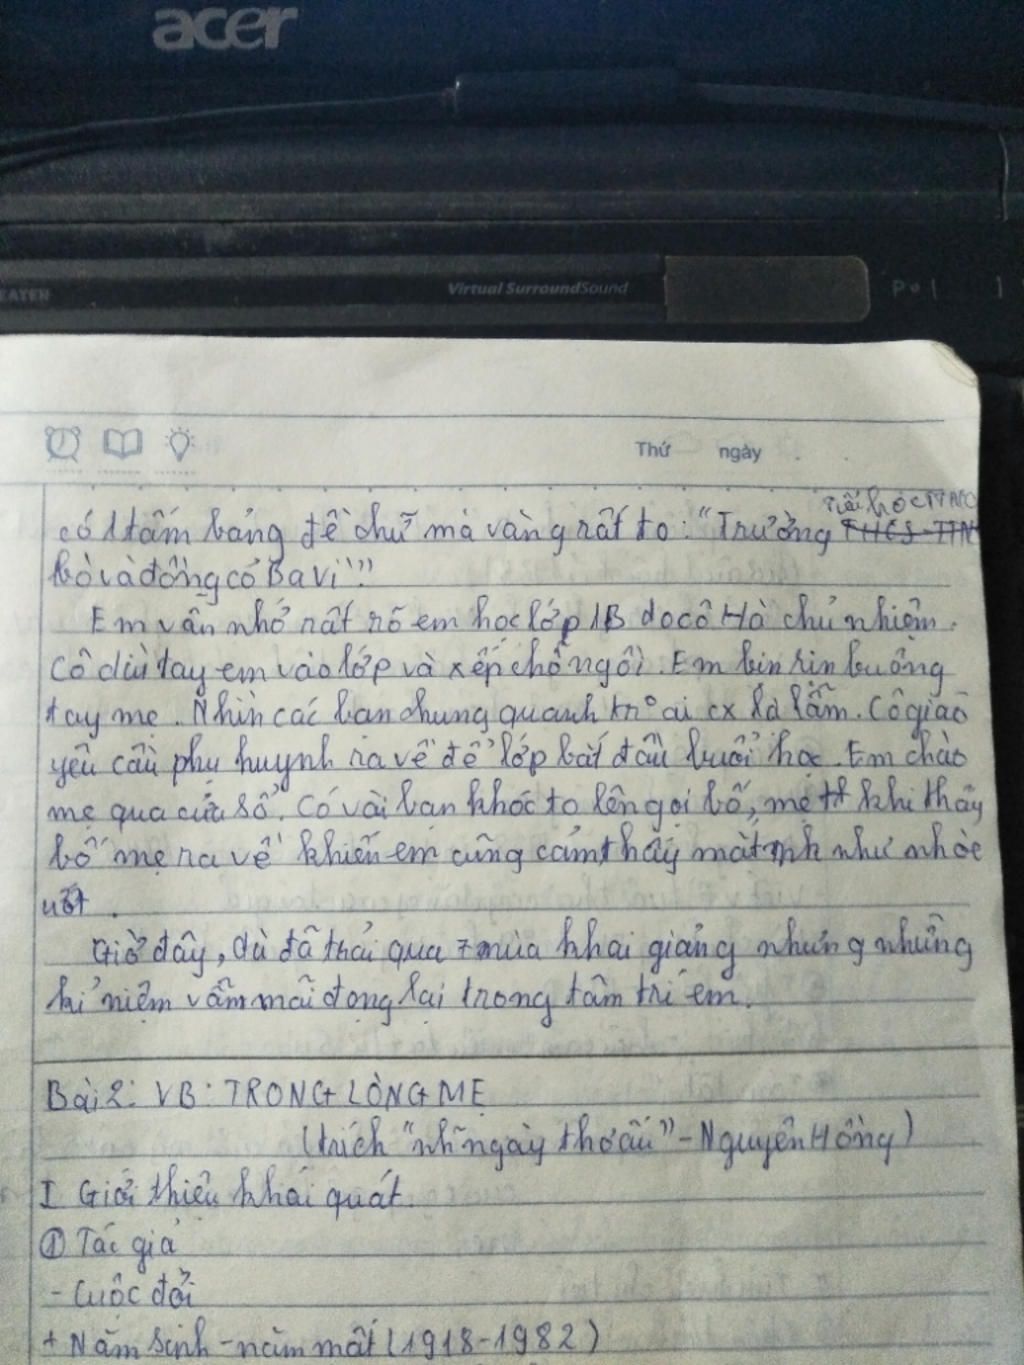 acer
EATER
Virtual SurroundSound
Thứ ngày
Tiểu học TTNC
có 1 tấm bảng đề chữ mạ vàng rất to: "Trường THCS-TTN
bò và đồng cỏ Ba Vì"."
Em vẫn nhớ rất rõ em học lớp 1B do cô Hà chủ nhiệm.
Cô dìu tay em vào lớp và xếp chỗ ngồi. Em bịn rịn buông
tay mẹ. Nhìn các bạn chung quanh tr° ai cx lạ lẫm. Cô giáo
yêu cầu phụ huynh ra về để lớp bắt đầu buổi học. Em chào
mẹ qua cửa sổ. Có vài bạn khóc to lên gọi bố, mẹ khi thấy
bố mẹ ra về khiến em cũng cảm thấy mắt mk như nhòe
ướt.
Giờ đây, dù đã trải qua 7 mùa khai giảng nhưng những
kỉ niệm vẫn mãi đọng lại trong tâm trí em.
Bài 2: VB: TRONG LÒNG MẸ
(trích "nh~ ngày thơ ấu" - Nguyên Hồng)
I Giới thiệu khái quát.
① Tác giả
- Cuộc đời
+ Năm sinh - năm mất (1918-1982)